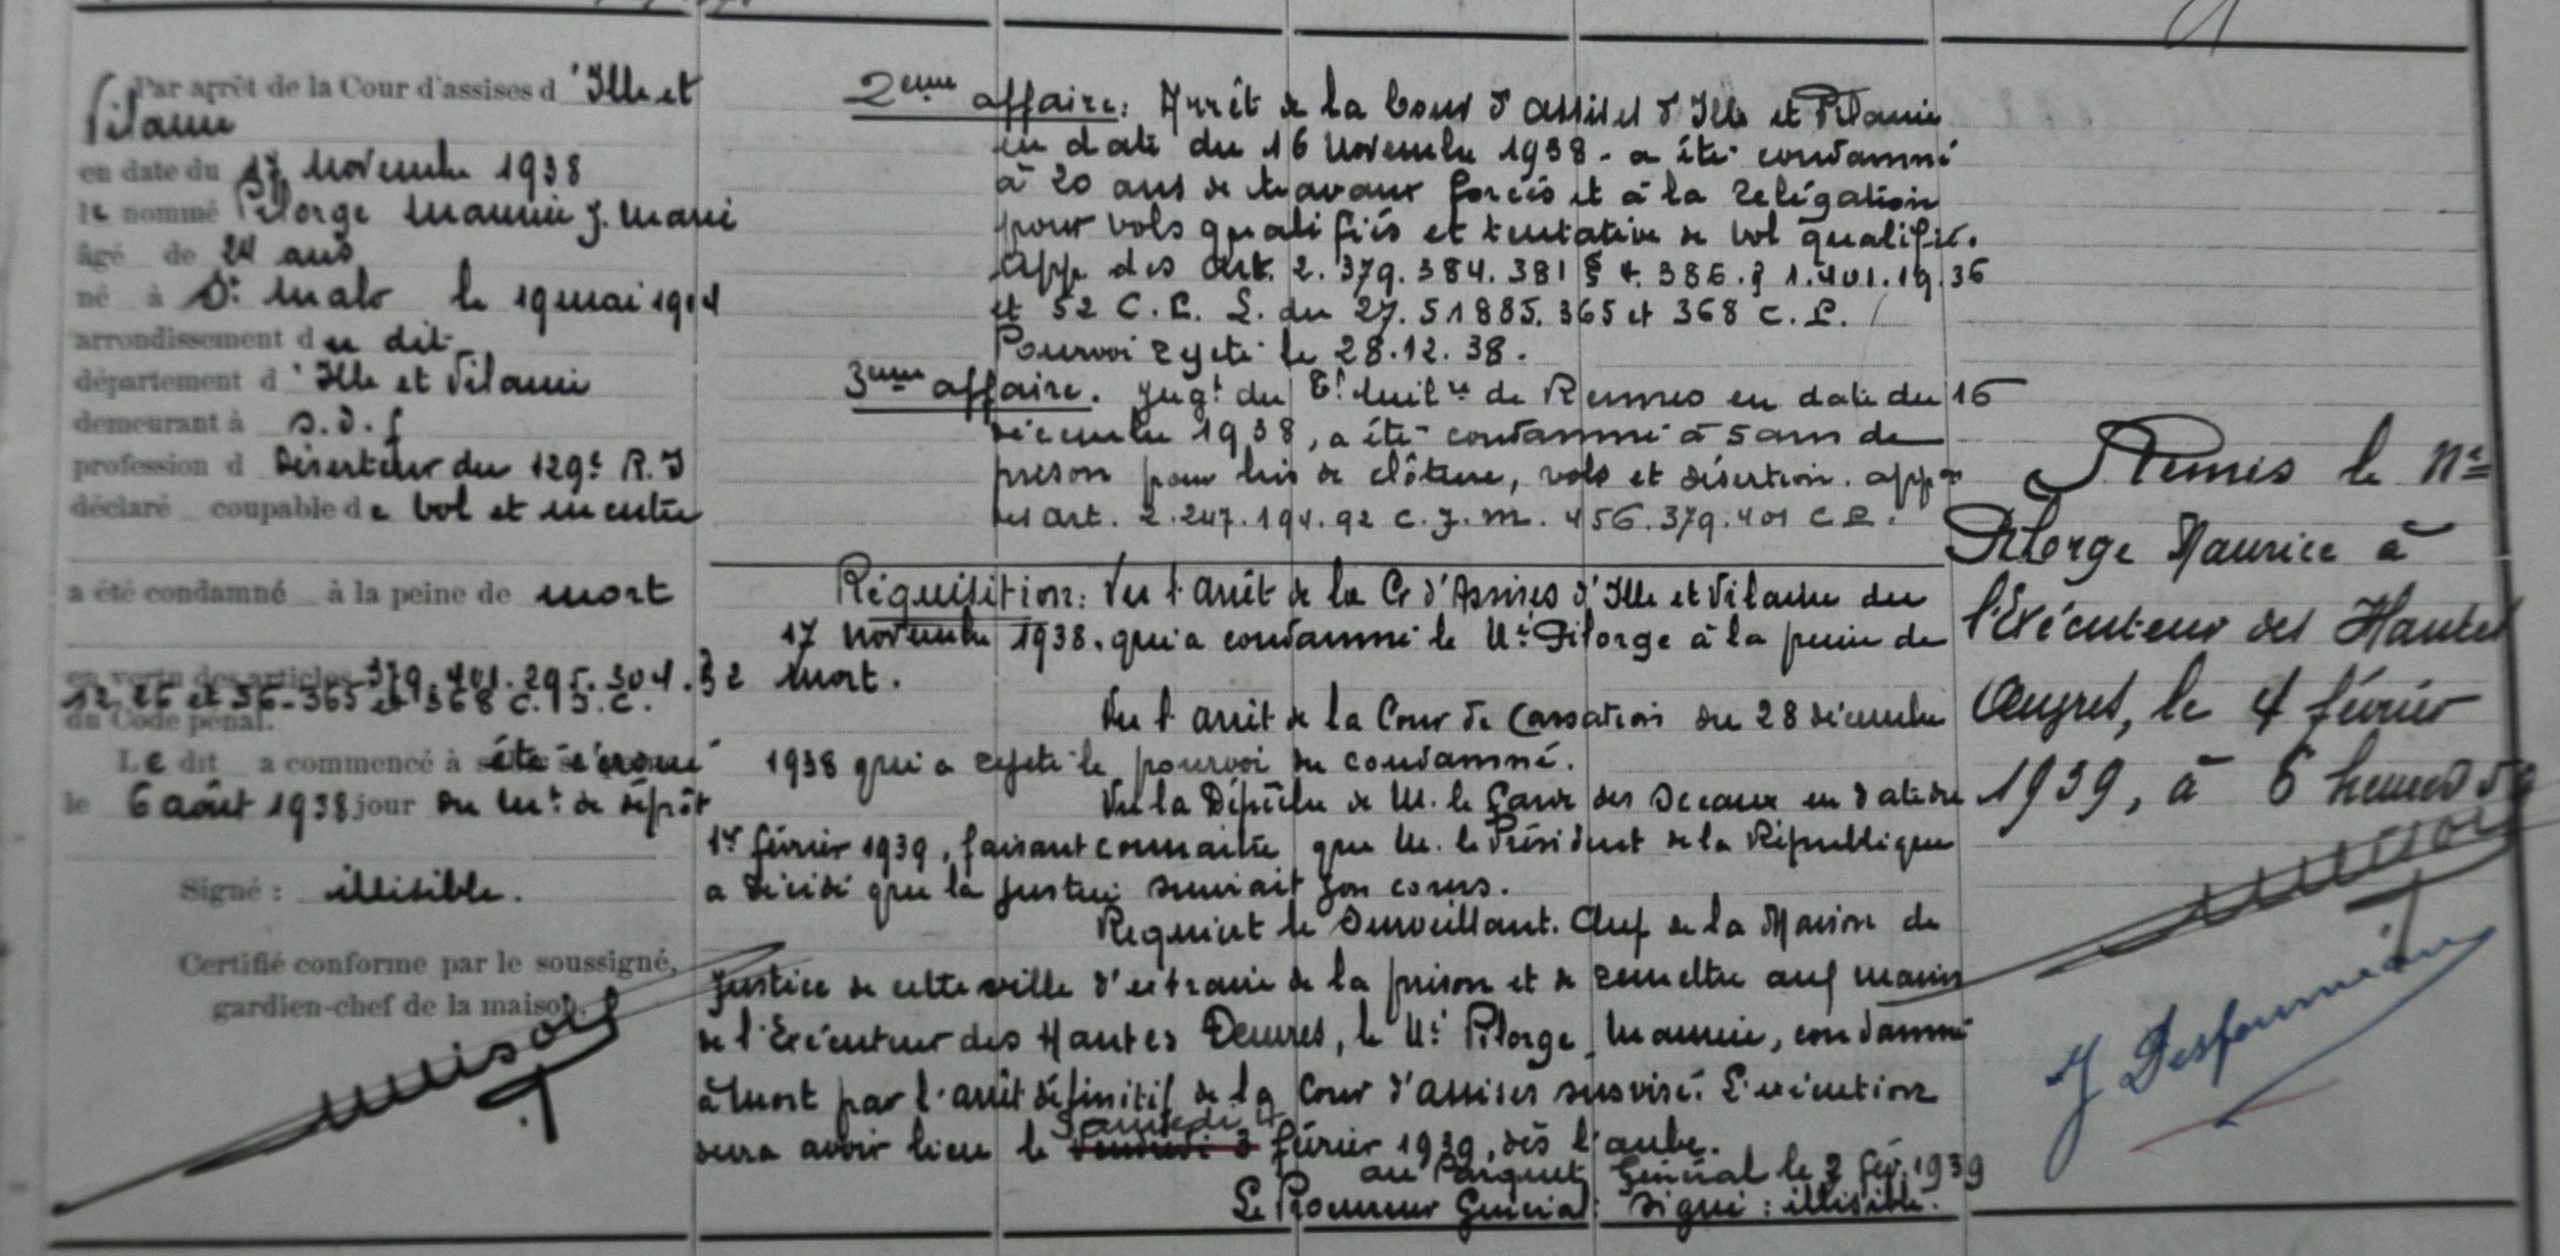 Par arrêt de la Cour d'assises d'Ille et
Vilaine
en date du 17 Novembre 1938
le nommé Pilorge Maurice J. Marie
âgé de 24 ans
né à St Malo le 19 mai 1914
arrondissement du dit
département d'Ille et Vilaine
demeurant à S.D.f
profession d Déserteur du 129e R.I
déclaré coupable de vol et meurtre
a été condamné à la peine de mort
en vertu des articles 379.401.295.304.32
12.26 et 36-365 et 368 C.P.
du Code pénal.
Le dit a commencé à été écroué
le 6 août 1938 jour du Mt de dépôt
Signé : illisible.
Certifié conforme par le soussigné,
gardien-chef de la maison,
2eme affaire: Arrêt de la Cour d'assises d'Ille et Vilaine
en date du 16 Novembre 1938 - a été condamné
à 20 ans de travaux forcés et à la relégation
pour vols qualifiés et tentative de vol qualifié.
App. des art. 2. 379. 384. 381 § 4. 386. § 1. 401. 19. 36
et 52 C.P. L. du 27.5 1885. 365 et 368 C.P.
Pourvoi rejeté le 28.12.38.
3eme affaire. Jugt du Tl Milre de Rennes en date du 16
décembre 1938, a été condamné à 5 ans de
prison pour bris de clôture, vols et désertion. appon
des art. 2.247.194.92 C.J.M. 456.379.401 C.P.
Réquisition: Vu l'arrêt de la Cr d'Assises d'Ille et Vilaine du
17 novembre 1938. qui a condamné le Né Pilorge à la peine de
Mort.
Vu l'arrêt de la Cour de Cassation du 28 décembre
1938 qui a rejeté le pourvoi du condamné.
Vu la Dépêche de M. le Garde des Sceaux en date du
1er février 1939, faisant connaître que M. le Président de la République
a décidé que la justice suivrait son cours.
Requiert le Surveillant. Chef de la Maison de
Justice de cette ville d'extraire de la prison et de remettre aux mains
de l'Exécuteur des Hautes Oeuvres, le Né Pilorge Maurice, condamné
à Mort par l'arrêt définitif de la Cour d'assises susvisé. L'exécution
Samedi 4
devra avoir lieu le Vendredi 3 février 1939, dès l'aube.
au Parquet Général le 2 fév. 1939
Le Procureur Général: Signé : illisible.
Remis le Né
Pilorge Maurice à
l'Exécuteur des Hautes
Oeuvres, le 4 février
1939, à 6 heures
J Desfourneaux